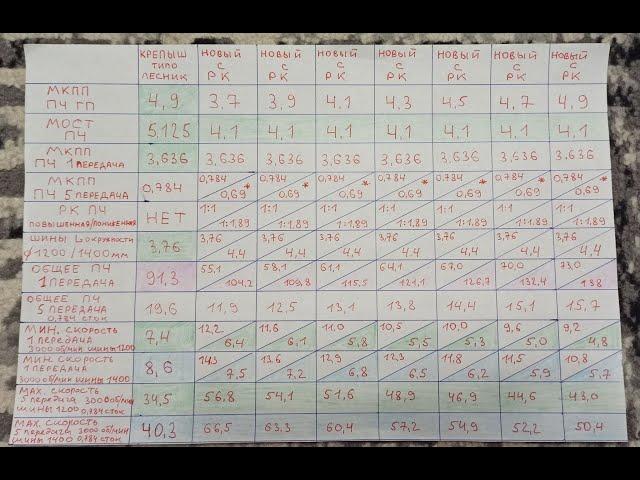 КРЕПЫШ ТИПО ЛЕСНИК | НОВЫЙ С РК | НОВЫЙ С РК | НОВЫЙ С РК | НОВЫЙ С РК | НОВЫЙ С РК | НОВЫЙ С РК | НОВЫЙ С РК
МКПП ПЧ ГП | 4,9 | 3,7 | 3,9 | 4,1 | 4,3 | 4,5 | 4,7 | 4,9
МОСТ ПЧ | 5,125 | 4,1 | 4,1 | 4,1 | 4,1 | 4,1 | 4,1 | 4,1
МКПП ПЧ 1 ПЕРЕДАЧА | 3,636 | 3,636 | 3,636 | 3,636 | 3,636 | 3,636 | 3,636 | 3.636
МКПП ПЧ 5 ПЕРЕДАЧА | 0,784 | 0,784 / 0,69* | 0,784 / 0,69* | 0,784 / 0,69* | 0,784 / 0,69* | 0,784 / 0,69* | 0,784 / 0,69* | 0,784 / 0,69*
РК ПЧ ПОВЫШЕННАЯ/ПОНИЖЕННАЯ | НЕТ | 1:1 / 1:1,89 | 1:1 / 1:1,89 | 1:1 / 1:1,89 | 1:1 / 1:1,89 | 1:1 / 1:1,89 | 1:1 / 1:1,89 | 1:1 / 1:1,89
ШИНЫ L окружности ф1200/1400мм | 3,76 | 3,76 / 4,4 | 3,76 / 4,4 | 3,76 / 4,4 | 3,76 / 4,4 | 3,76 / 4,4 | 3,76 / 4,4 | 3,76 / 4,4
ОБЩЕЕ ПЧ 1 ПЕРЕДАЧА | 91,3 | 55,1 / 104,2 | 58,1 / 109,8 | 61,1 / 115,5 | 64,1 / 121,1 | 67,0 / 126,7 | 70,0 / 132,4 | 73,0 / 138
ОБЩЕЕ ПЧ 5 ПЕРЕДАЧА 0,784 СТОК | 19,6 | 11,9 | 12,5 | 13,1 | 13,8 | 14,4 | 15,1 | 15,7
МИН. СКОРОСТЬ 1 ПЕРЕДАЧА 3000 об/мин ШИНЫ 1200 | 7,4 | 12,2 / 6,4 | 11,6 / 6,1 | 11,0 / 5,8 | 10,5 / 5,5 | 10,0 / 5,3 | 9,6 / 5,0 | 9,2 / 4,8
МИН СКОРОСТЬ 1 ПЕРЕДАЧА 3000 об/мин ШИНЫ 1400 | 8,6 | 14,3 / 7,5 | 13,6 / 7,2 | 12,9 / 6,8 | 12,3 / 6,5 | 11,8 / 6,2 | 11,5 / 5,9 | 10,8 / 5,7
МАХ. СКОРОСТЬ 5 передача 3000 об/мин ШИНЫ 1200 0,784 СТОК | 34,5 | 56,8 | 54,1 | 51,6 | 48,9 | 46,9 | 44,6 | 43,0
МАХ. СКОРОСТЬ 5 передача 3000 об/мин ШИНЫ 1400 0,784 СТОК | 40,3 | 66,5 | 63,3 | 60,4 | 57,2 | 54,9 | 52,2 | 50,4